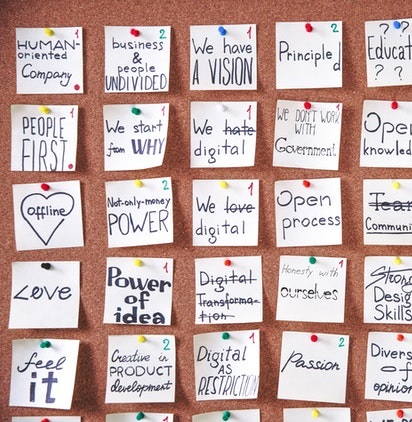 HUMAN- 1
oriented
Company.
business 2
&
people
UNDIVIDED
We have 1
A VISION
Principled 2
? ?
Educat
? ?
PEOPLE 1
FIRST.
We start 1
from WHY
We hate 1
digital
WE DON'T WORK 1
WITH
Government
Open
knowled
offline
Not-only-money 2
POWER
We love 1
digital
Open
process
Team
Communi
Love
Power 1
of
idea
Digital
Transforma-
tion
Honesty with 1
ourselves
Strong
Design
Skills
feel
it
Creative in 2
PRODUCT
development
Digital 1
AS
RESTRICTION
Passion 2
Divers
of
opinion